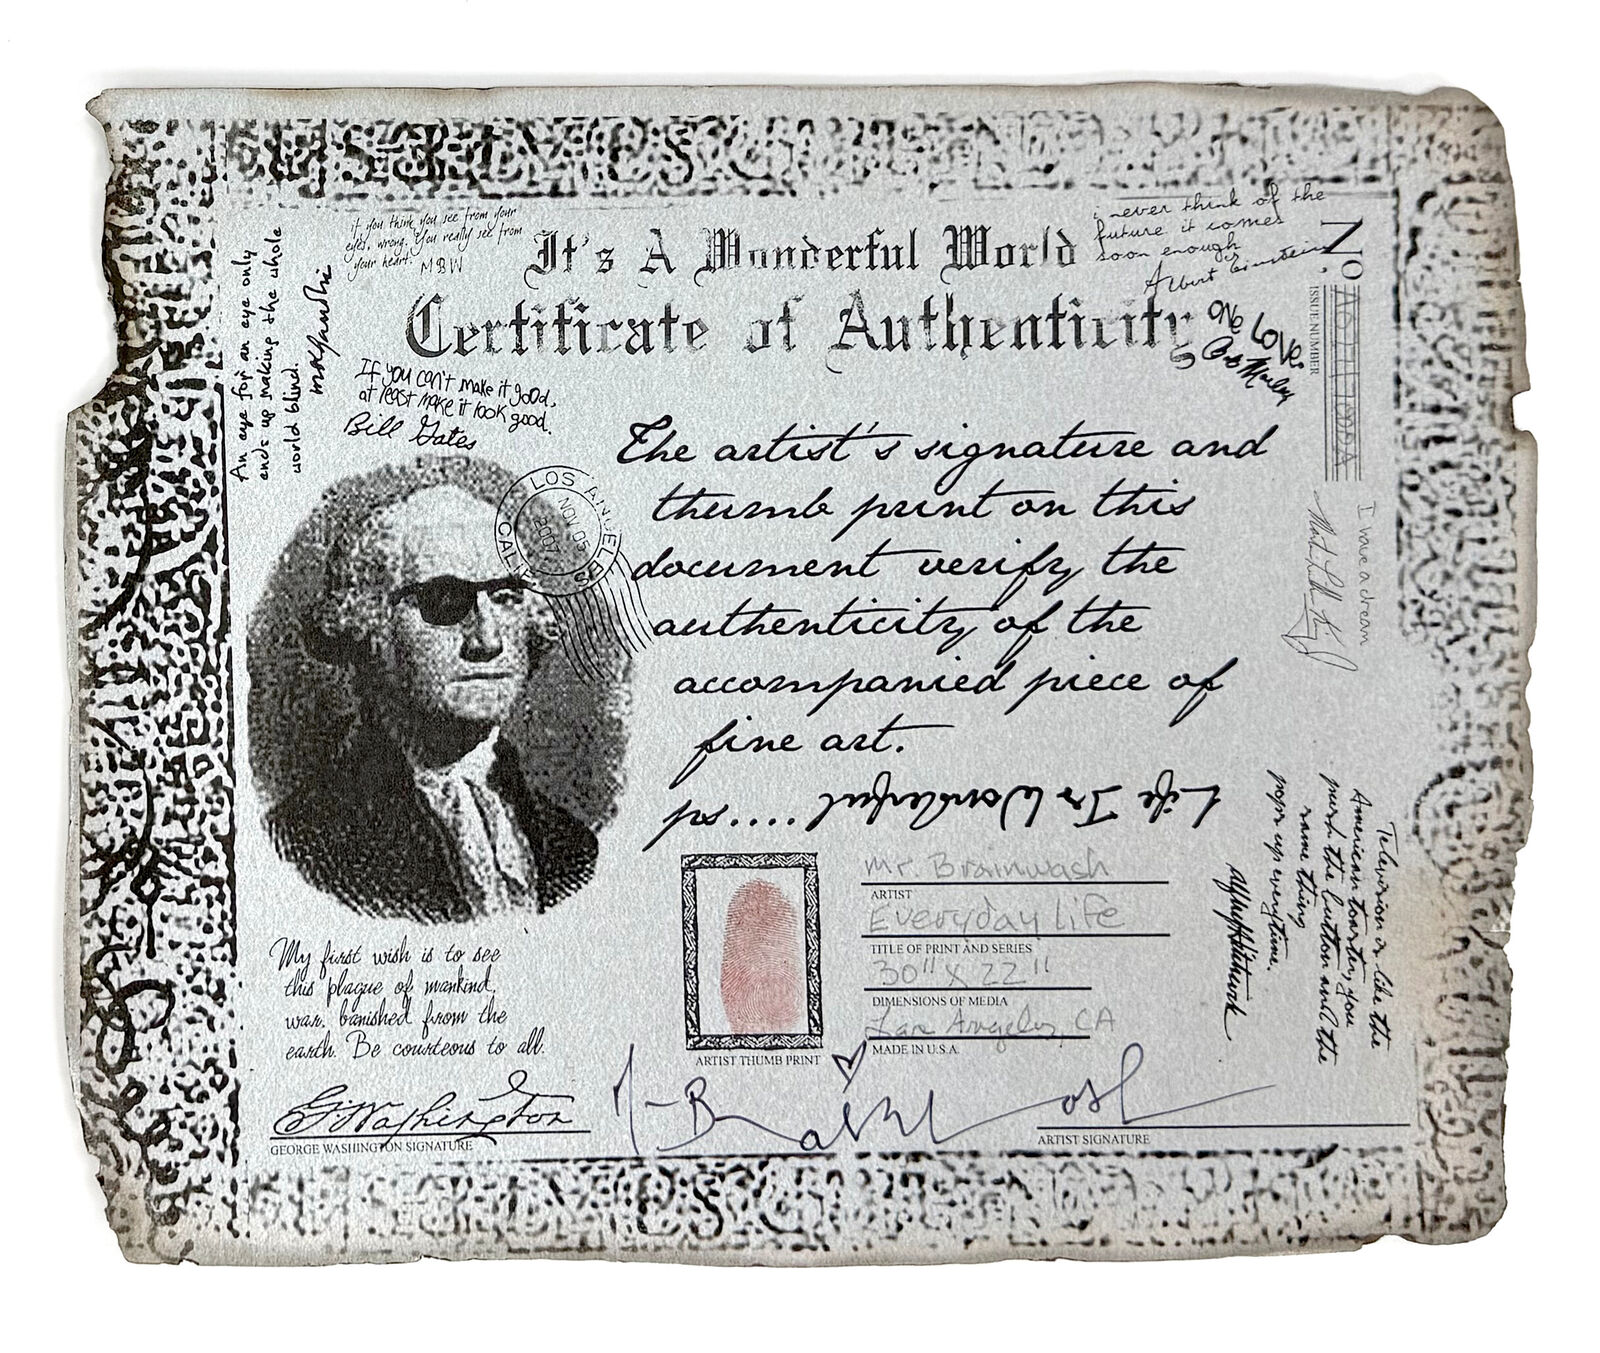 if you think you see from your
eyes, wrong. You really see from
your heart. MBW
It's A Wonderful World
Certificate of Authenticity
i never think of the
future it comes
soon enough
Albert Einstein
No.
ISSUE NUMBER
One Love.
Bob Marley
An eye for an eye only
ends up making the whole
world blind.
MKGandhi
If you can't make it good,
at least make it look good.
Bill Gates
LOS ANGELES
CALIF
NOV 05
2007
The artist's signature and
thumb print on this
document verify the
authenticity of the
accompanied piece of
fine art.
ps.....Life Is Wonderful
I have a dream
Television is like the
American toaster, you
push the button and the
same thing
pops up everytime.
My first wish is to see
this plague of mankind,
war, banished from the
earth. Be courteous to all.
G. Washington
GEORGE WASHINGTON SIGNATURE
ARTIST THUMB PRINT
Mr. Brainwash
ARTIST
Everyday Life
TITLE OF PRINT AND SERIES
30" x 22"
DIMENSIONS OF MEDIA
Los Angeles, CA
MADE IN U.S.A.
ARTIST SIGNATURE